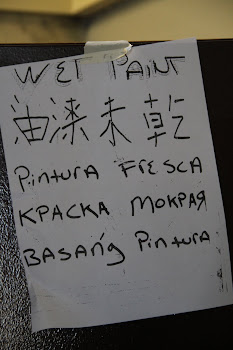 WET PAINT
油漆未乾
Pintura FRESCA
КРАСКА МОКРАЯ
BASANG Pintura